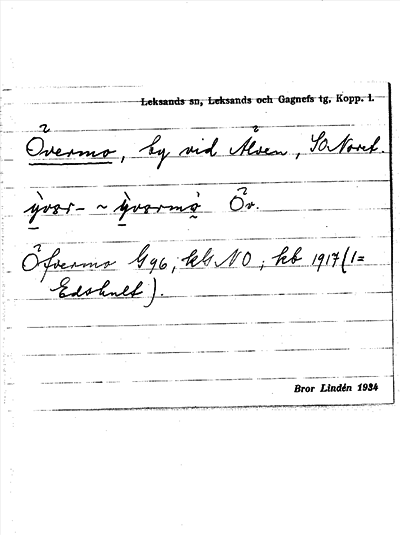 Leksands sn, Leksands och Gagnefs tg, Kopp. l.
Övermo, by vid Älven, SO Noret.
ỳvər- ~ ỳvərmo Öv.
Öfvermo G96, kb NO, hb 1917 (1=
Edshult).
Bror Lindén 1934